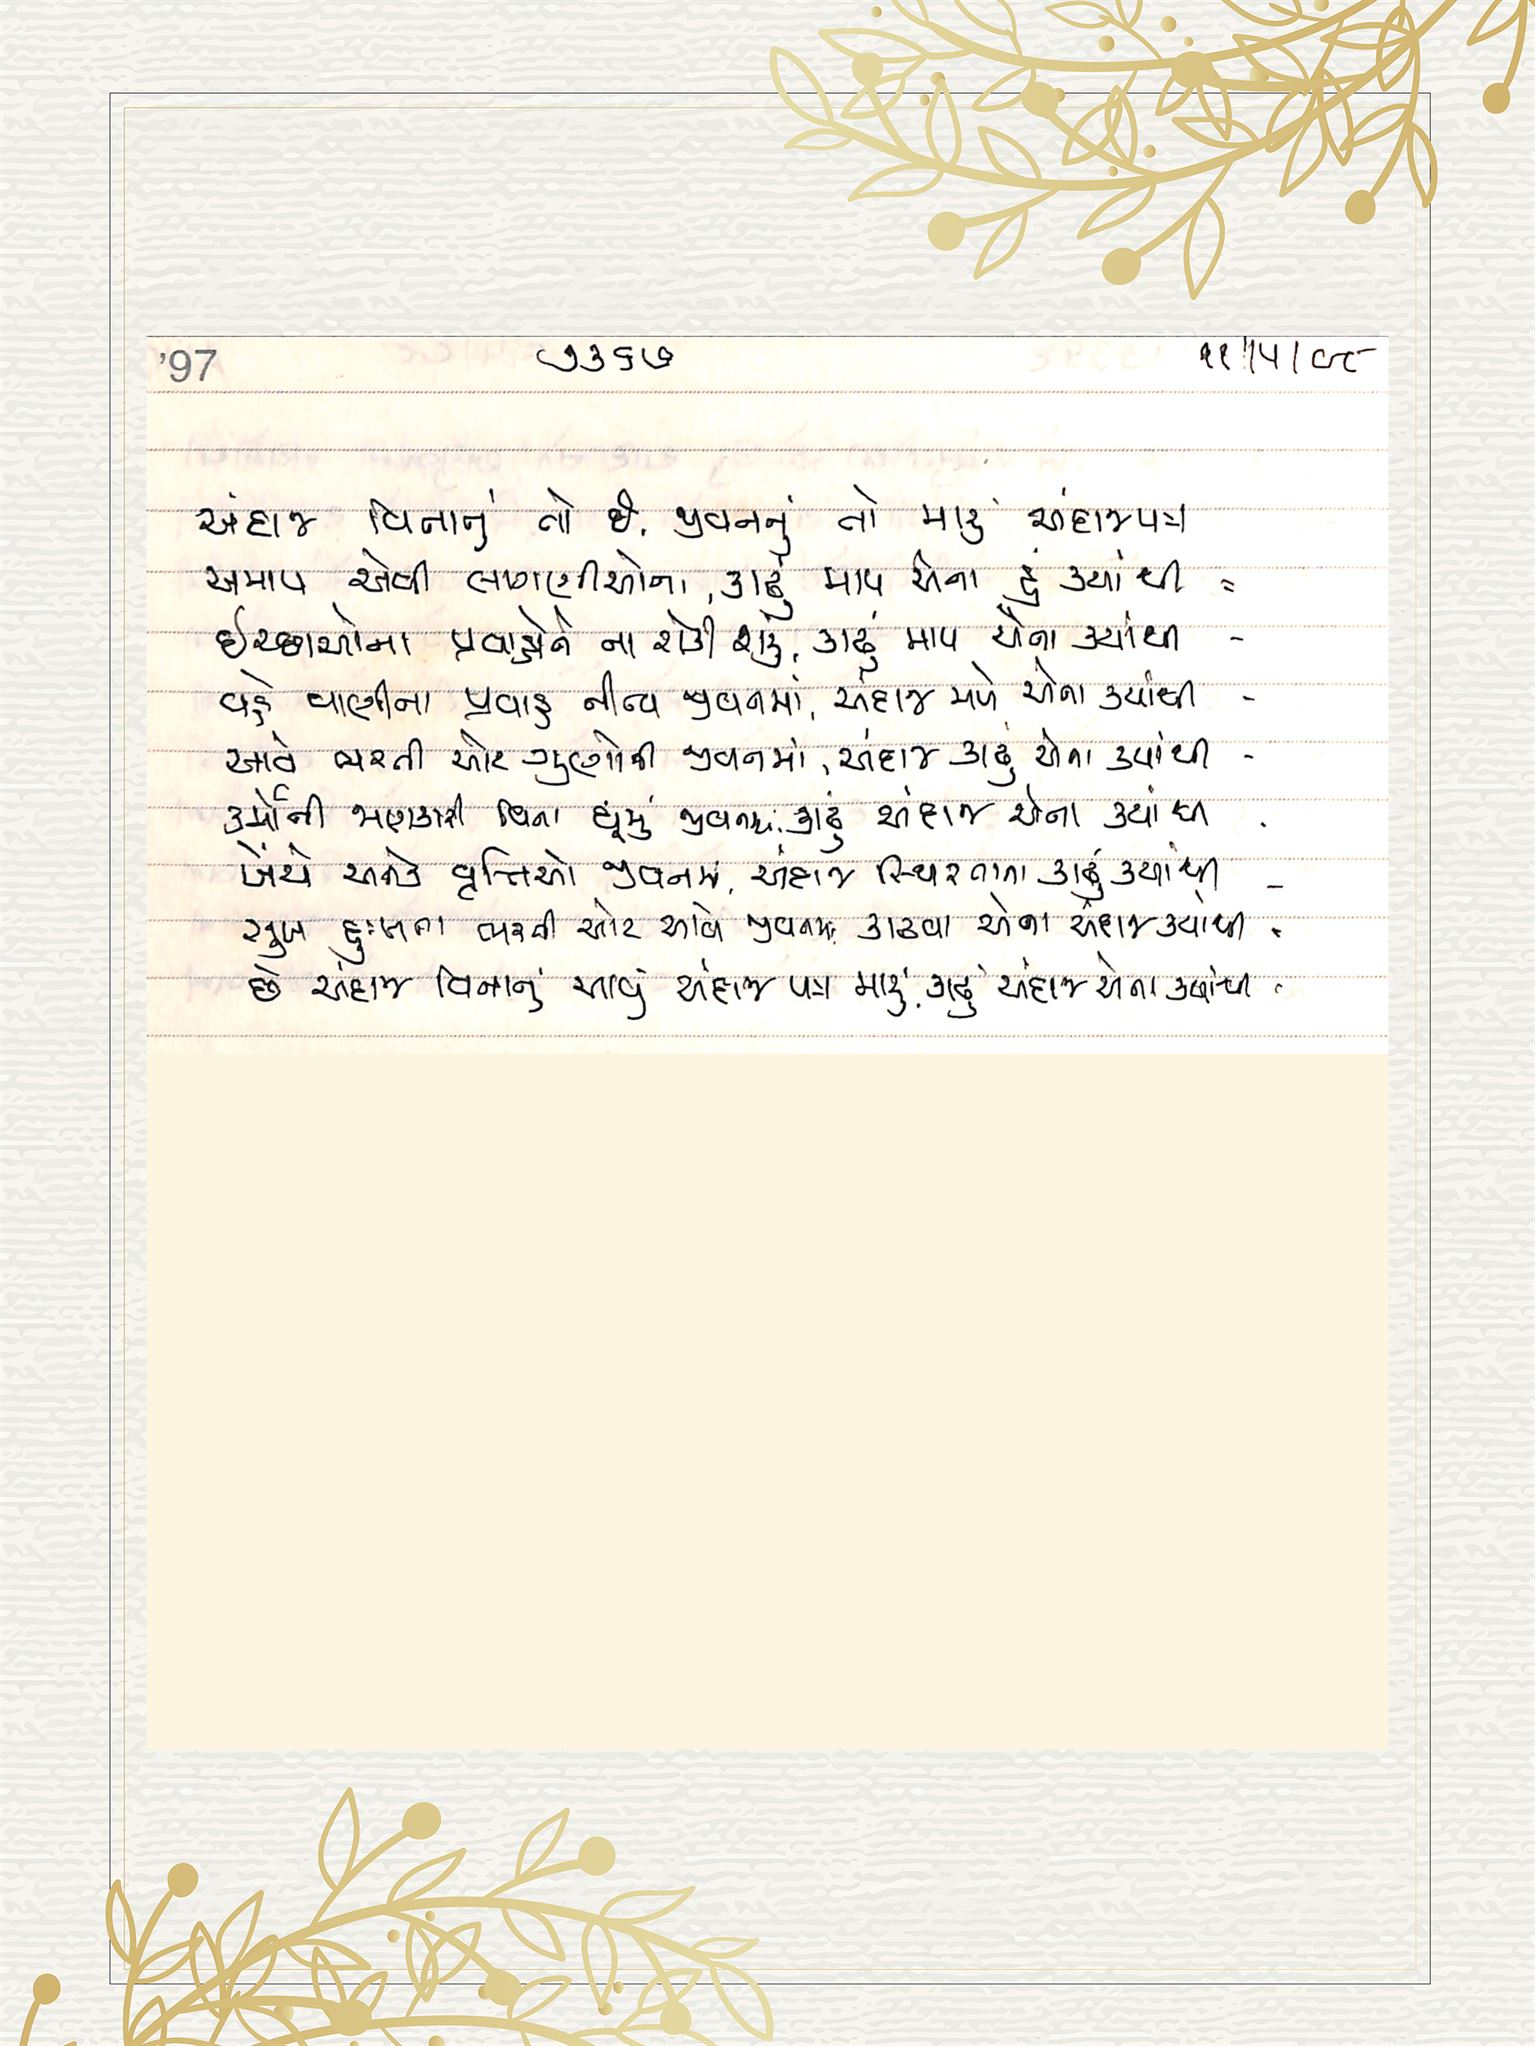 '97 ૭૩૬૭ ૧૧/૫/૯૮
અંદાજ વિનાનું તો છે, જીવનનું તો મારું અંદાજપત્ર
અમાપ એવી લાગણીઓના, કાઢું માપ એના હું ક્યાંથી =
ઈચ્છાઓના પ્રવાહોને ના રોકી શકું, કાઢું માપ એના ક્યાંથી -
વહે વાણીના પ્રવાહ નીત્ય જીવનમાં, અંદાજ મળે એના ક્યાંથી -
આવે ભરતી ઓટ ગુણોની જીવનમાં, અંદાજ કાઢું એના ક્યાંથી -
ઉર્મિની ગણતરી વિના ઘૂમું જીવનમાં, કાઢું અંદાજ એના ક્યાંથી .
ખેંચે અનેક વૃત્તિઓ જીવનમાં, અંદાજ સ્થિરતાના કાઢું ક્યાંથી -
સુખ દુઃખના ભરતી ઓટ આવે જીવનમાં, કાઢવા એના અંદાજ ક્યાંથી -
છે અંદાજ વિનાનું આવું અંદાજ પત્ર મારું, કાઢું અંદાજ એના ક્યાંથી -